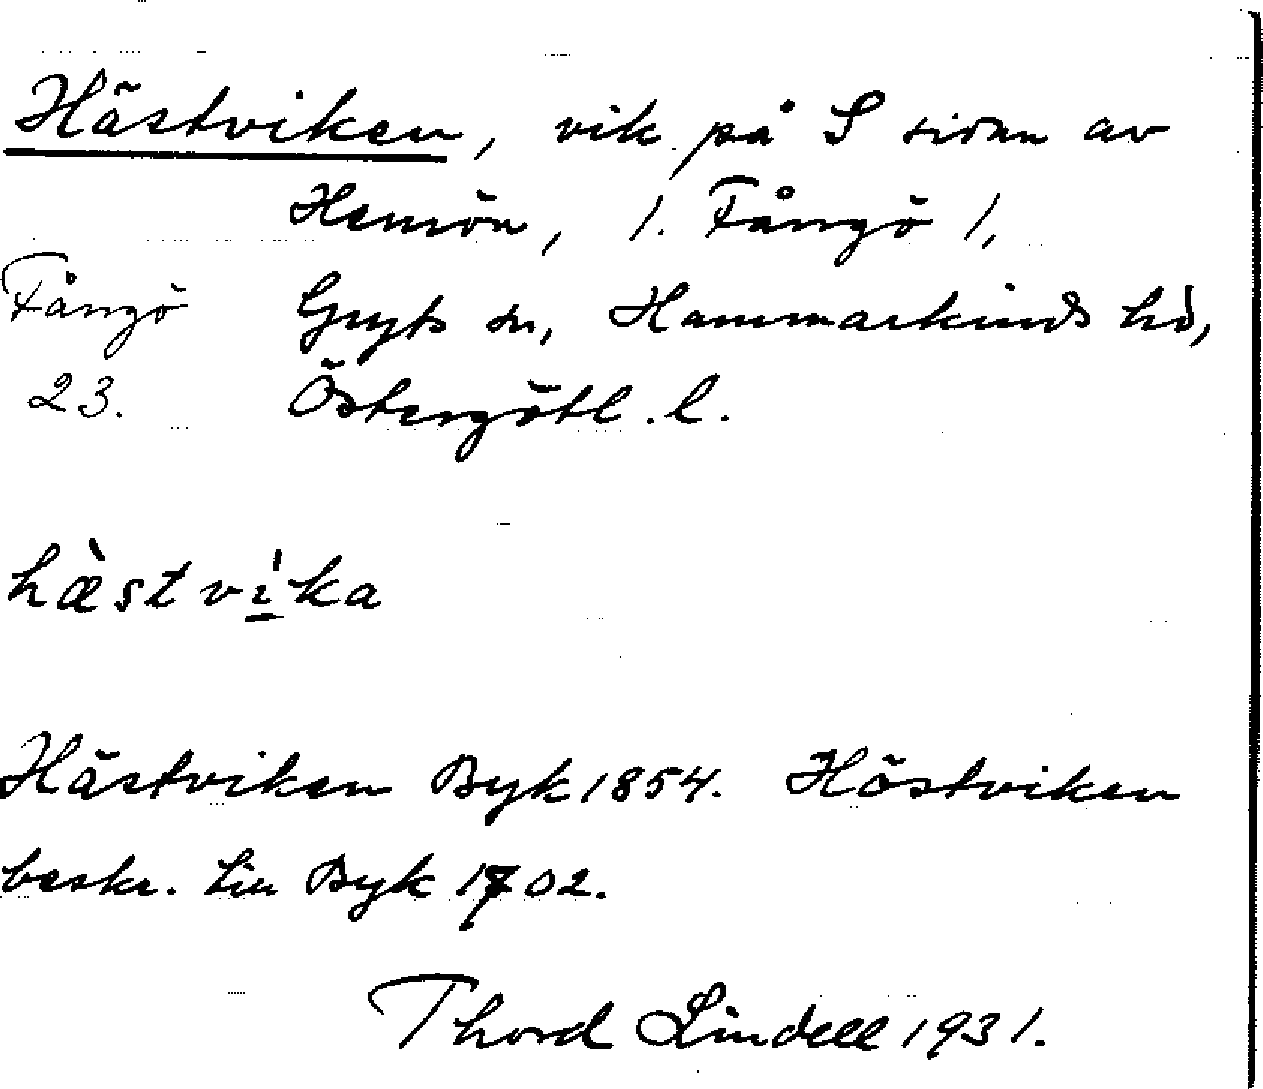 Hästviken, vik på S sidan av
Hemön, 1. Fångö 1,
Fångö Gryts sn, Hammarkinds hd,
23. Östergötl. l.
hæ̀ství̱ka
Hästviken Byk 1854. Höstviken
beskr. till Byk 1702.
Thord Lindell 1931.